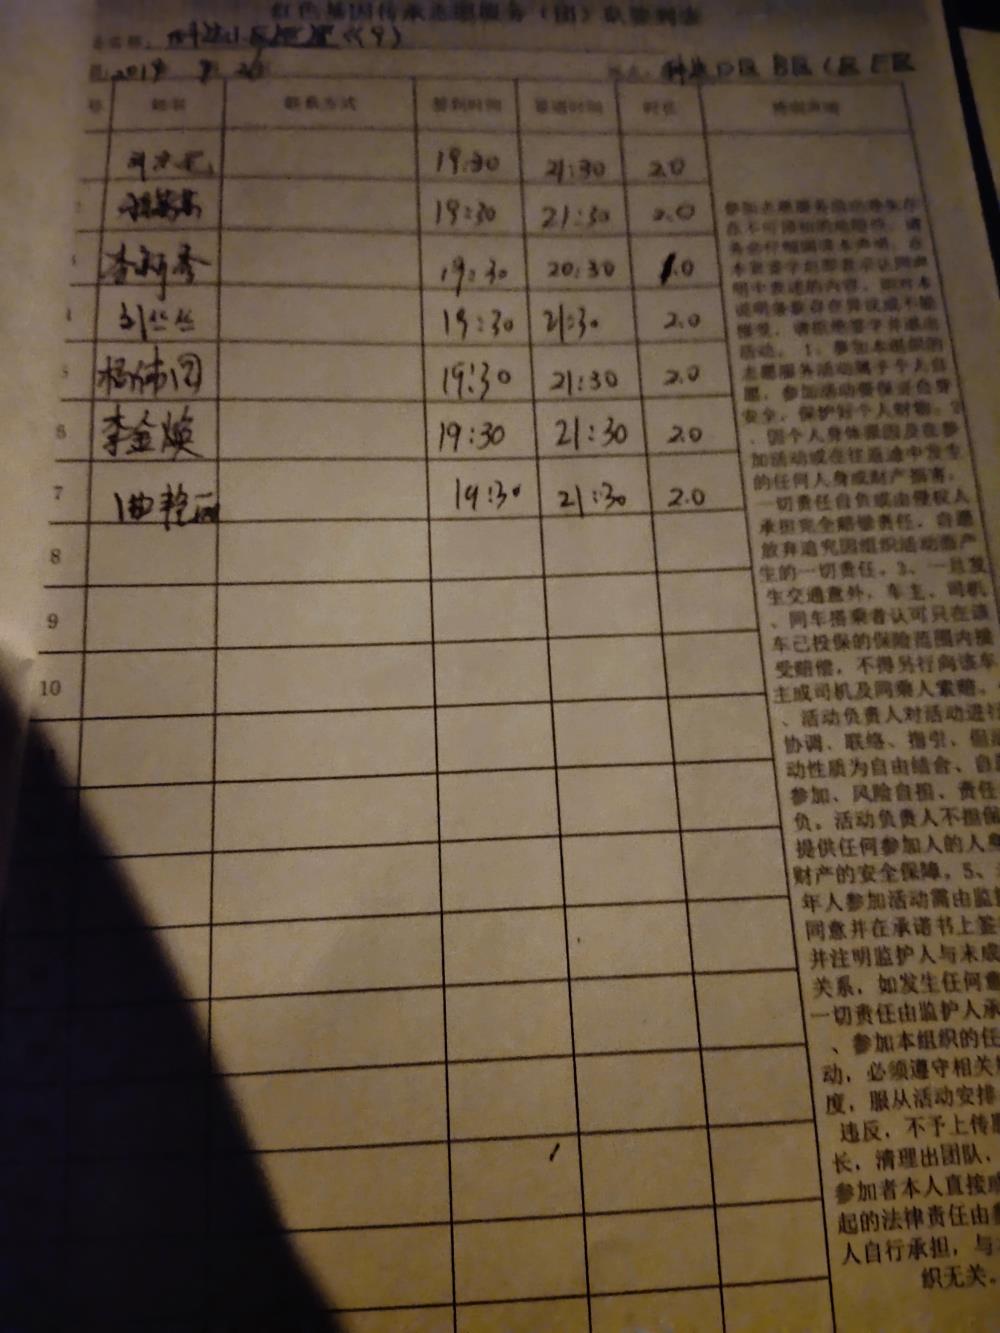 红色基因传承志愿服务(团)队签到表
2019
D区 B区 C区 E区
姓名 联系方式 签到时间 签退时间 时长
19:30 21:30 2.0
19:30 21:30 2.0
李新秀 19:30 20:30 1.0
刘丝丝 19:30 21:30 2.0
杨伟 19:30 21:30 2.0
6 李金焕 19:30 21:30 2.0
7 曲艳 19:30 21:30 2.0
8
9
10
参加志愿服务活动将会存
在不可预知的危险性,请
务必仔细阅读本声明,在
本页签字后即表示认同声
明中表述的内容,如对本
说明条款存在异议或不能
接受,请拒绝签字并退出
活动。1、参加本组织的
志愿服务活动属于个人自
愿,参加活动需保证自身
安全,保护好个人财物。2
、因个人身体原因及在参
加活动或在往返途中发生
的任何人身或财产损害,
一切责任自负或由侵权人
承担完全赔偿责任,自愿
放弃追究因组织活动而产
生的一切责任。3、一旦发
生交通意外,车主、司机
、同车搭乘者认可只在该
车已投保的保险范围内接
受赔偿,不得另行向该车
主或司机及同乘人索赔。
、活动负责人对活动进行
协调、联络、指引,但活
动性质为自由结合、自愿
参加、风险自担、责任
负。活动负责人不担保
提供任何参加人的人身
财产的安全保障。5、
年人参加活动需由监护
同意并在承诺书上签
并注明监护人与未成
关系,如发生任何意
一切责任由监护人承
、参加本组织的任
动,必须遵守相关
度,服从活动安排
违反,不予上传
长,清理出团队,
参加者本人直接或
起的法律责任由参
人自行承担,与
织无关。